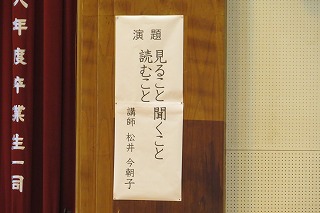 演題
見ること 聞くこと
読むこと
講師 松井 今朝子
八年度卒業生一同